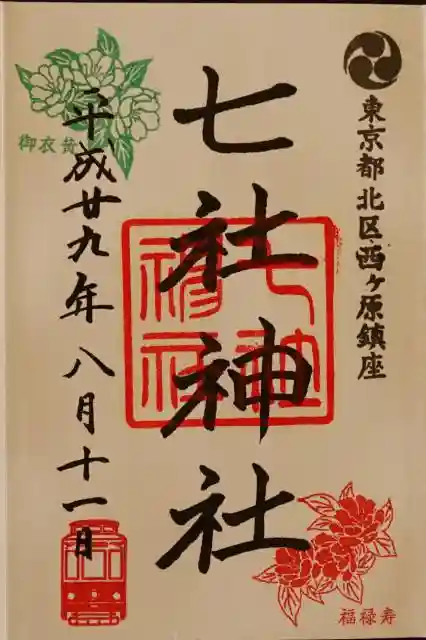 東京都北区西ヶ原鎮座
七社神社
平成廿九年八月十一日
御衣黄
福禄寿
七社
神社